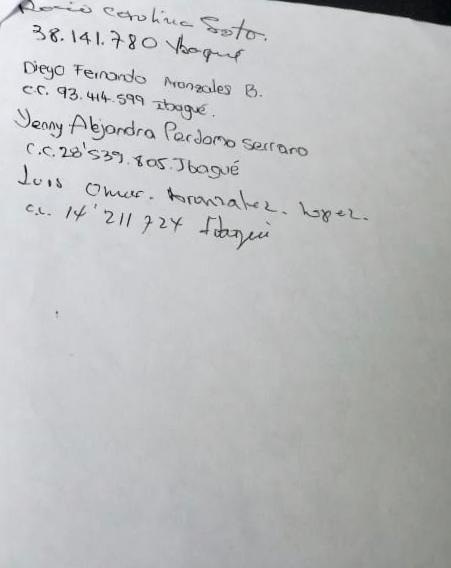 Rocio Carolina Soto.
38.141.780 Ibagué
Diego Fernando Aranzales B.
c.c. 93.414.599 Ibagué.
Yenny Alejandra Perdomo Serrano
C.C. 28'539.805. Ibagué
Luis Omar. Aranzalez. Lopez.
c.c. 14'211724 Ibagué